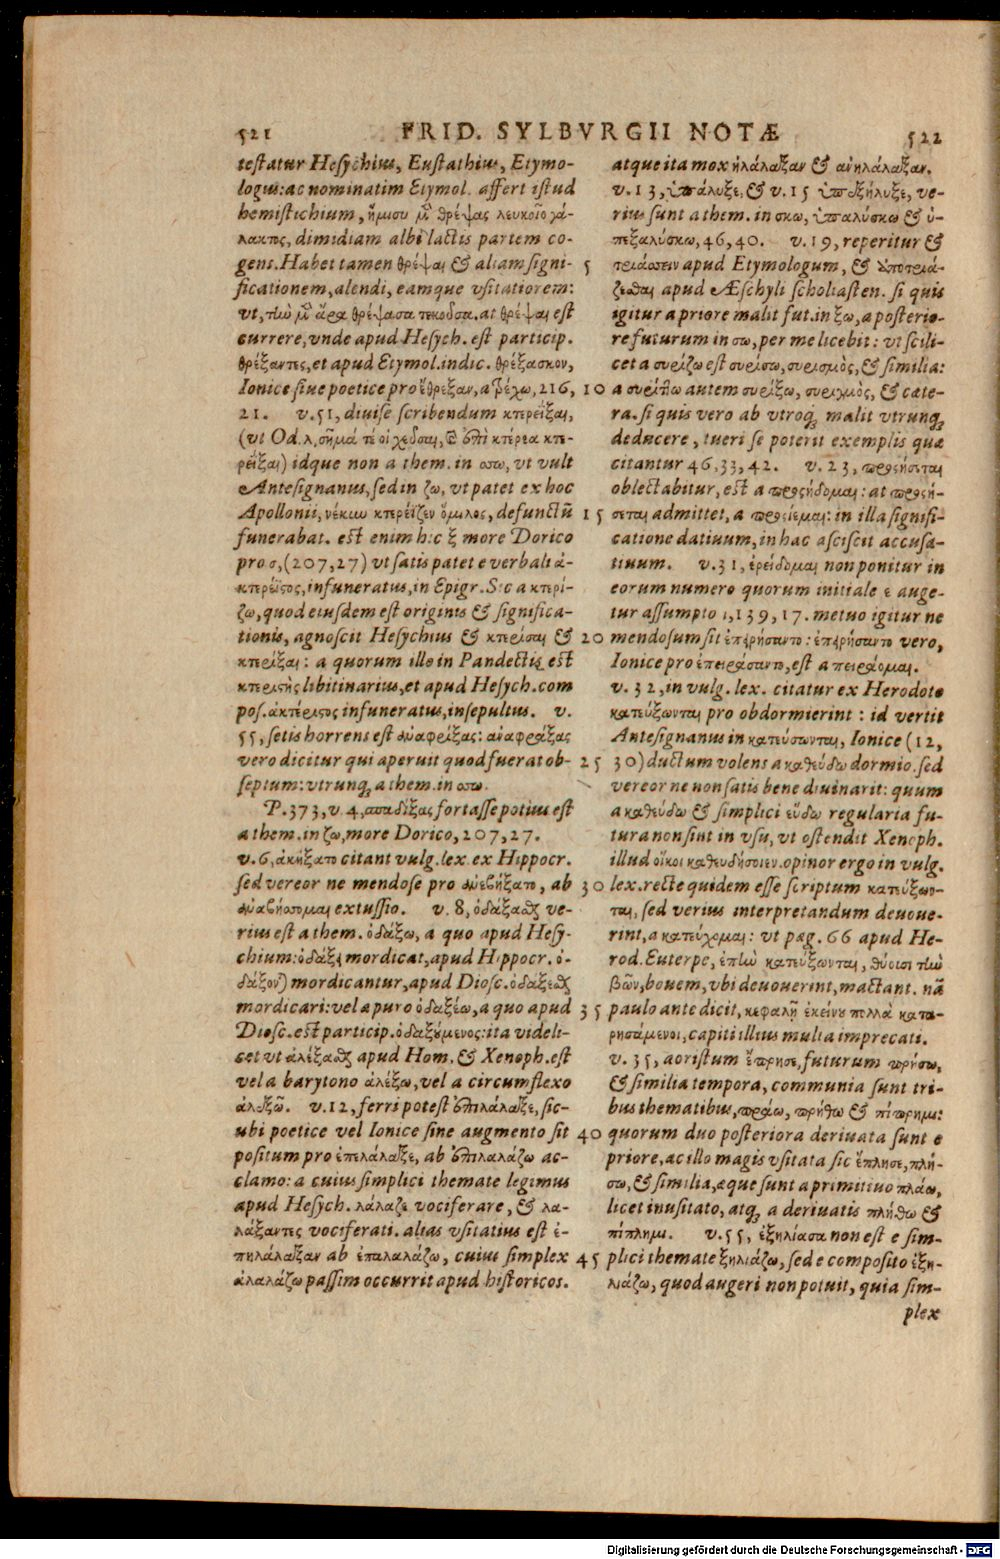 521 FRID. SYLBVRGII NOTÆ 522
testatur Hesychius, Eustathius, Etymo-
logus: ac nominatim Etymol. affert istud
hemistichium, ἥμισυ μὲν θρέψας λευκοῖο γά-
λακτος, dimidiam albi lactis partem co-
gens. Habet tamen θρέψαι & aliam signi-
ficationem, alendi, eamque vsitatiorem:
vt, τὴν μὲν ἄρα θρέψασα τεκοῦσα, at θρέψαι est
currere, vnde apud Hesych. est particip.
θρέξαντες, et apud Etymol. indic. θρέξασκον,
Ionice siue poetice pro ἔθρεξαν, a τρέχω, 216,
21. v. 51, diuise scribendum κτερεΐξαι,
(vt Od. λ, σῆμά τέ οἱ χεῦσαι, καὶ ἐπὶ κτέρεα κτε-
ρεΐξαι) idque non a them. in σσω, vt vult
Antesignanus, sed in ζω, vt patet ex hoc
Apollonii, νέκυν κτερέϊζεν ὅμιλος, defunctū
funerabat. est enim hic ξ more Dorico
pro σ, (207, 27) vt satis patet e verbali ἀ-
κτερέϊστος, infuneratus, in Epigr. Sic a κτερί-
ζω, quod eiusdem est originis & significa-
tionis, agnoscit Hesychius & κτερίσαι &
κτερίξαι: a quorum illo in Pandectis est
κτεριστὴς libitinarius, et apud Hesych. com
pos. ἀκτέριστος infuneratus, insepultus. v.
55, setis horrens est ἀναφρίξας: ἀναφράξας
vero dicitur qui aperuit quod fuerat ob-
septum: vtrunq; a them. in σσω.
P. 373, v. 4, σπαδίξας fortasse potius est
a them. in ζω, more Dorico, 207, 27.
v. 6, ἀκήξατο citant vulg. lex. ex Hippocr.
sed vereor ne mendose pro ἀνεβήξατο, ab
ἀναβήσσομαι extussio. v. 8, ὀδάξασθαι ve-
rius est a them. ὀδάξω, a quo apud Hesy-
chium: ὀδάξει mordicat, apud Hippocr. ὀ-
δάξονται mordicantur, apud Diosc. ὀδάξεσθαι
mordicari: vel a puro ὀδαξέω, a quo apud
Diosc. est particip. ὀδαξούμενος: ita videli-
cet vt ἀλέξασθαι apud Hom. & Xenoph. est
vel a barytono ἀλέξω, vel a circumflexo
ἀλεξῶ. v. 12, ferri potest ἐπιλάλαξε, sic-
ubi poetice vel Ionice sine augmento sit
positum pro ἐπελάλαξε, ab ἐπιλαλάζω ac-
clamo: a cuius simplici themate legimus
apud Hesych. λάλαζε vociferare, & λα-
λάξαντες vociferati. alias vsitatius est ἐ-
πηλάλαξαν ab ἐπαλαλάζω, cuius simplex
ἀλαλάζω passim occurrit apud historicos.
atque ita mox ἠλάλαξαν & ἀνηλάλαξαν.
v. 13, ὑπάλυξε, & v. 15 ὑπεξήλυξε, ve-
rius sunt a them. in σκω, ὑπαλύσκω & ὑ-
πεξαλύσκω, 46, 40. v. 19, reperitur &
5 τειάσσειν apud Etymologum, & ὑποτειά-
ζεσθαι apud Æschyli scholiasten. si quis
igitur a priore malit fut. in ξω, a posterio-
re futurum in σω, per me licebit: vt scili-
cet a συρίζω est συρίσω, συρισμὸς, & similia:
10 a συρίττω autem συρίξω, συριγμὸς, & cæte-
ra. si quis vero ab vtroq; malit vtrunq;
deducere, tueri se poterit exemplis quæ
citantur 46, 33, 42. v. 23, προσήσεται
oblectabitur, est a προσήδομαι: at προσή-
15 σεται admittet, a προσίεμαι: in illa signifi-
catione datiuum, in hac asciscit accusa-
tiuum. v. 31, ἐρείδομαι non ponitur in
eorum numero quorum initiale ε auge-
tur assumpto ι, 139, 17. metuo igitur ne
20 mendosum sit ἐπῃρήσαντο: ἐπειρήσαντο vero,
Ionice pro ἐπειράσαντο, est a πειράομαι.
v. 32, in vulg. lex. citatur ex Herodoto
κατεύξωνται pro obdormierint: id vertit
Antesignanus in κατεύσωνται, Ionice (12,
25 30) ductum volens a καθεύδω dormio. sed
vereor ne non satis bene diuinarit: quum
a καθεύδω & simplici εὕδω regularia fu-
tura non sint in vsu, vt ostendit Xenoph.
illud οἴκοι καθευδήσοιεν. opinor ergo in vulg.
30 lex. recte quidem esse scriptum κατεύξων-
ται, sed verius interpretandum deuoue-
rint, a κατεύχομαι: vt pag. 66 apud He-
rod. Euterpe, ἐπὴν κατεύξωνται, θύουσι τὴν
βῶν, bouem, vbi deuouerint, mactant. nā
35 paulo ante dicit, κεφαλῇ ἐκείνῃ πολλὰ κατα-
ρησάμενοι, capiti illius multa imprecati.
v. 35, aoristum ἔπρησε, futurum πρήσω,
& similia tempora, communia sunt tri-
bus thematibus, πράω, πρήθω & πίπρημι:
40 quorum duo posteriora deriuata sunt e
priore, ac illo magis vsitata sic ἔπλησε, πλή-
σω, & similia, æque sunt a primitiuo πλάω,
licet inusitato, atq; a deriuatis πλήθω &
πίπλημι. v. 55, ἐξηλίασα non est e sim-
45 plici themate ξηλιάζω, sed e composito ἐξη-
λιάζω, quod augeri non potuit, quia sim-
plex
Digitalisierung gefördert durch die Deutsche Forschungsgemeinschaft - DFG